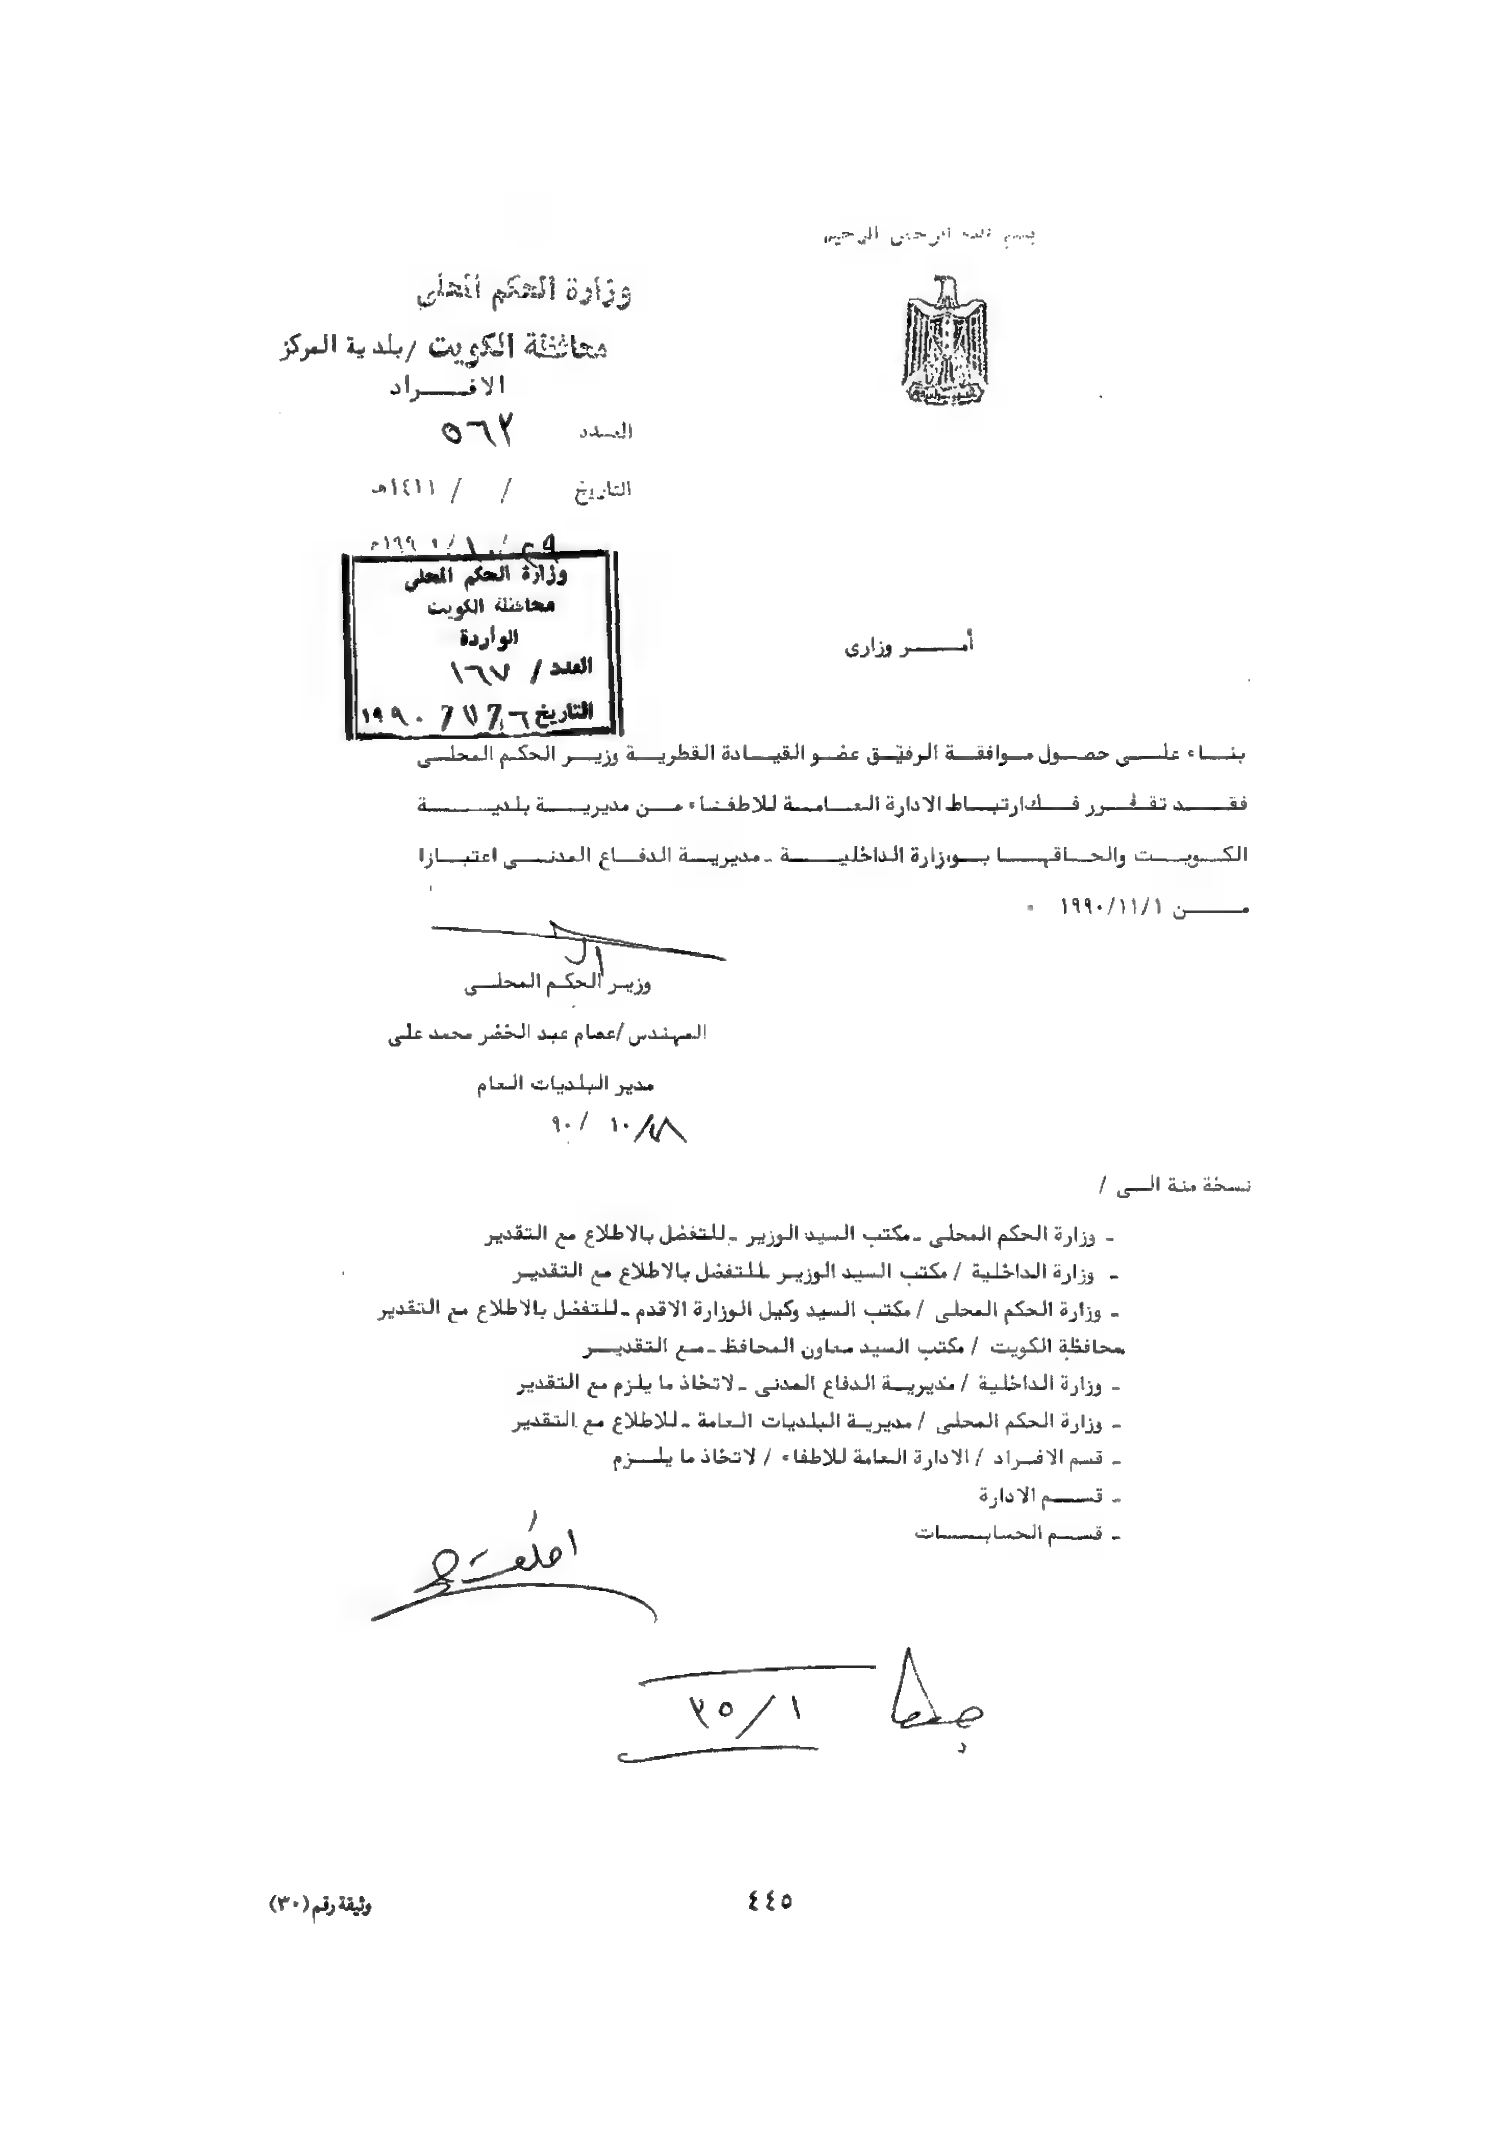 بسم الله الرحمن الرحيم
وزارة الحكم المحلي
محافظة الكويت / بلدية المركز
الافـــراد
العـدد ٥٦٢
التاريخ / / ١٤١١هـ
/١٠/ ١٩٩٠م
وزارة الحكم المحلي
محافظة الكويت
الواردة
العدد / ١٦٧
التاريخ ٦ / ١١ / ١٩٩٠
أمـــر وزارى
بنـاء علـى حصـول مـوافقـة الرفيق عضـو القيـادة القطريـة وزيـر الحكـم المحلـى
فقـد تقـرر فـك ارتبـاط الادارة العـامـة للاطفـاء مـن مديريـة بلديـــة
الكـويـت والحـاقهـا بـوزارة الداخليـة ـ مديريـة الدفـاع المدنـى اعتبـارا
مــن ١٩٩٠/١١/١ ٠
وزيـر الحكـم المحلـى
المهندس / عصام عبد الخضر محمد على
مدير البلديات العام
٩٠ / ١٠ /
نسخة منة الـى /
ـ وزارة الحكم المحلى ـ مكتب السيد الوزير ـ للتفضل بالاطلاع مع التقدير
ـ وزارة الداخلية / مكتب السيد الوزيـر للتفضل بالاطلاع مع التقديـر
ـ وزارة الحكم المحلى / مكتب السيد وكيل الوزارة الاقدم ـ للتفضل بالاطلاع مع التقدير
محافظة الكويت / مكتب السيد معاون المحافظ ـ مـع التقديـــر
ـ وزارة الداخلية / مديريـة الدفاع المدنى ـ لاتخاذ ما يلزم مع التقدير
ـ وزارة الحكم المحلى / مديريـة البلديات العامة ـ للاطلاع مع التقدير
ـ قسم الافـراد / الادارة العامة للاطفاء / لاتخاذ ما يلـزم
ـ قســم الادارة
ـ قسـم الحسابـــات
١ / ٣٥
٤٤٥
وثيقة رقم (٣٠)